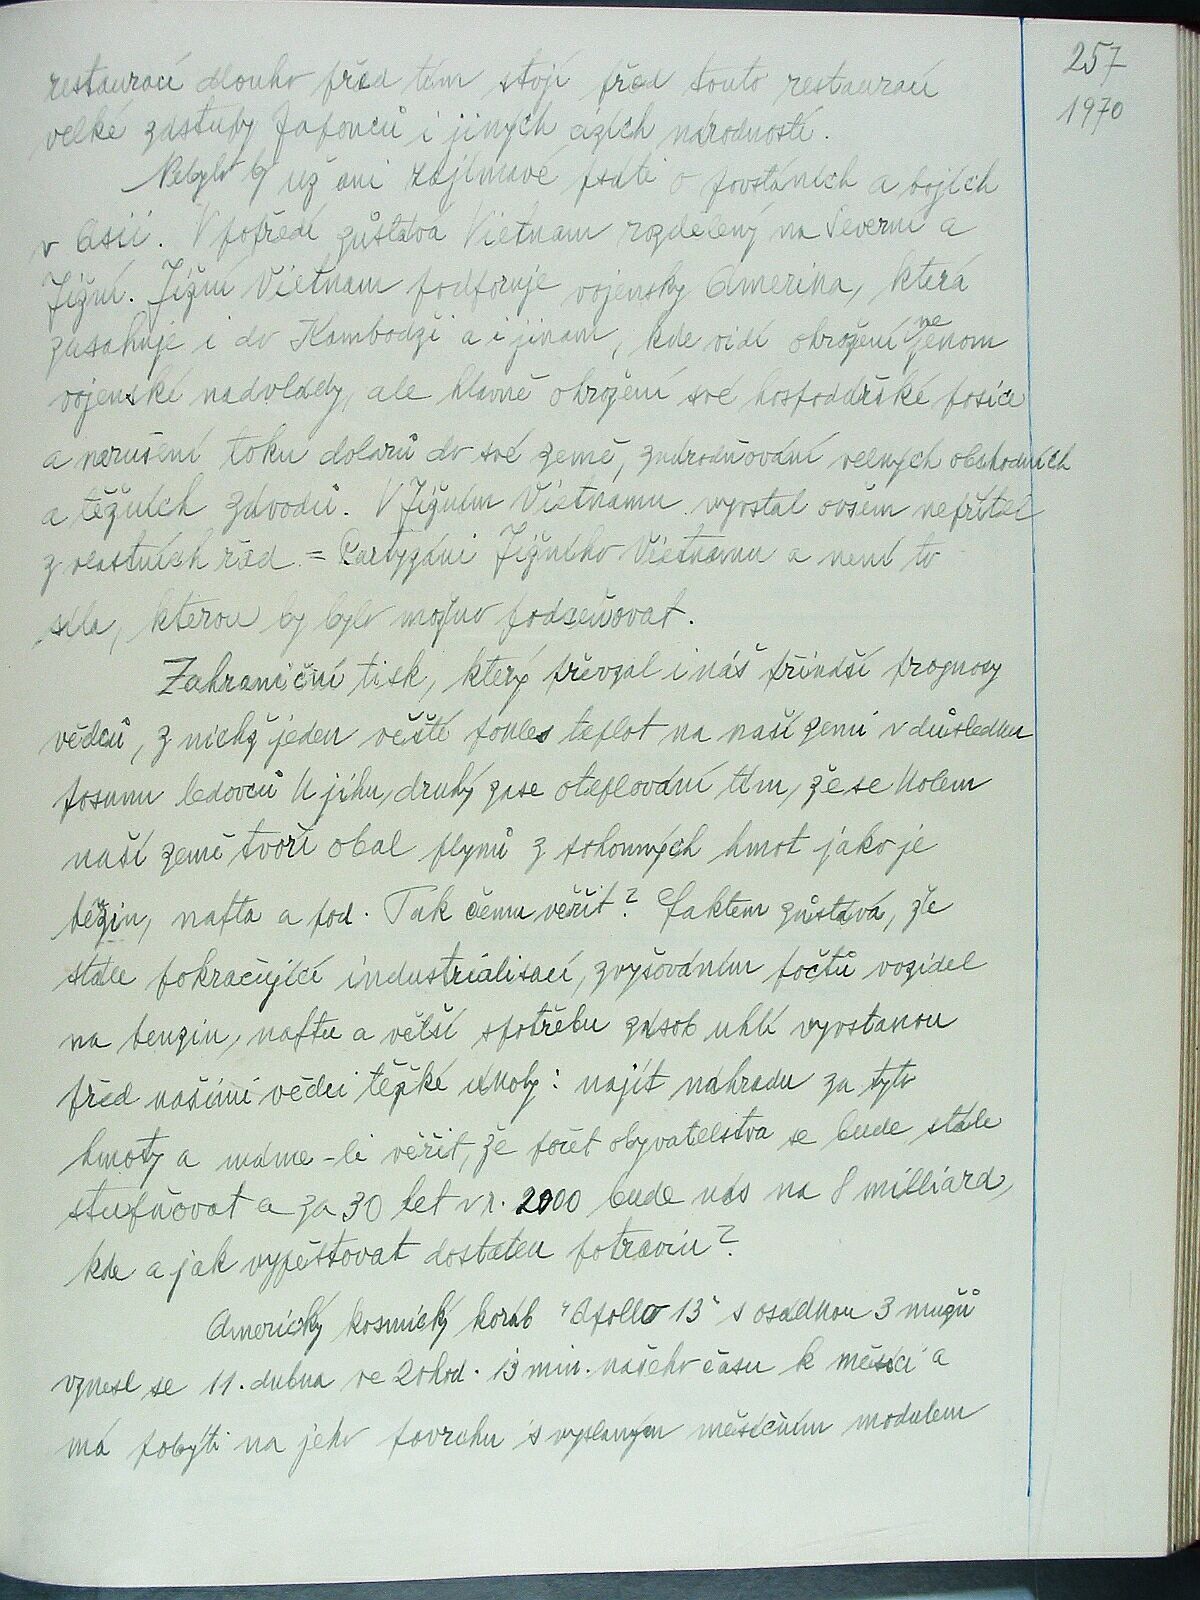 257
1970
restaurací dlouho před tím stojí před touto restaurací
velké zástupy Japonců i jiných cizích národností.
Nebylo by už ani zajímavé psáti o povstáních a bojích
v Asii. V popředí zůstává Vietnam rozdělený na Severní a
Jižní. Jižní Vietnam podporuje vojensky Amerika, která
zasahuje i do Kambodži a i jinam, kde vidí ohrožení ne jenom
vojenské nadvlády, ale hlavně ohrožení své hospodářské posice
a narušení toku dolarů do své země, znárodňování velných obchodních
a těžních závodů. V Jižním Vietnamu vyvstal ovšem nepřítel
z vlastních řad = Partyzáni Jižního Vietnamu a není to
síla, kterou by bylo možno podceňovat.
Zahraniční tisk, který převzal i náš přináší prognosy
vědců, z nichž jeden věští pokles teplot na naší zemi v důsledku
posunu ledovců k jihu, druhý zase oteplování tím, že se kolem
naší země tvoří obal plynů z pohonných hmot jako je
benzin, nafta a pod. Tak čemu věřit? Faktem zůstává, že
stále pokračující industrialisací, zvyšováním počtů vozidel
na benzin, naftu a větší spotřebu zásob uhlí vyvstanou
před našimi vědci těžké úkoly: najít náhradu za tyto
hmoty a máme-li věřit, že počet obyvatelstva se bude stále
stupňovat a za 30 let v r. 2000 bude nás na 8 milliard,
kde a jak vypěstovat dostatek potravin?
Americký kosmický koráb "Apollo 13" s osádkou 3 mužů
vznesl se 11. dubna ve 20 hod. 13 min. našeho času k měsíci a
má pobýti na jeho povrchu s vyslaným měsíčním modulem